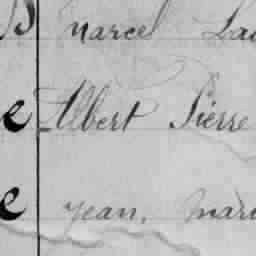 Marcel
e Albert Pierre
e Jean, Mari